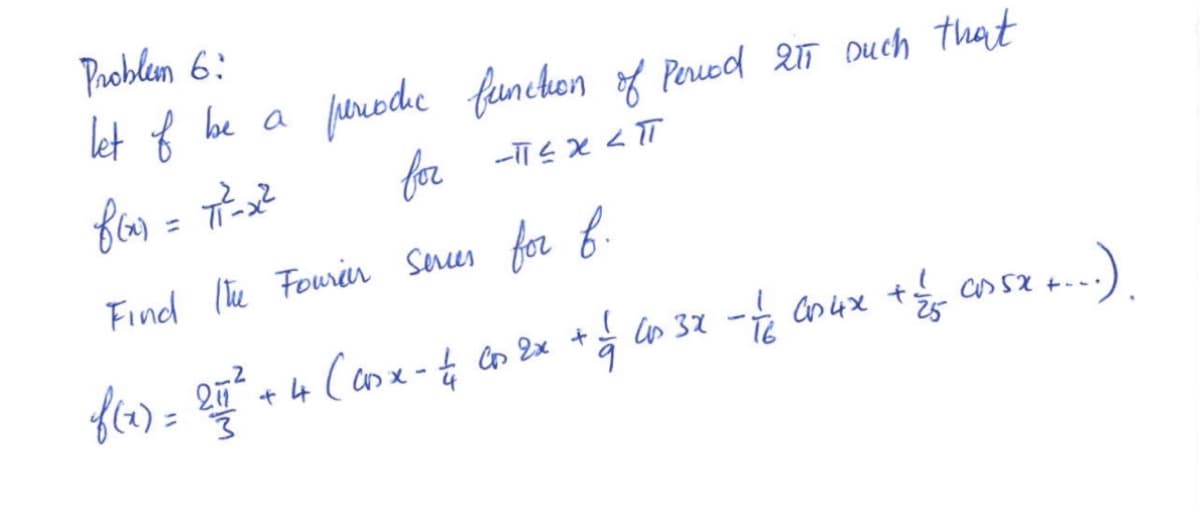 Problem 6:
let f be a periodic function of Period 2π such that
f(x) = π²-x² for -π ≤ x < π
Find the Fourier Series for f.
f(x) = 2π²/3 + 4 (cos x - 1/4 cos 2x + 1/9 cos 3x - 1/16 cos 4x + 1/25 cos 5x + ....).